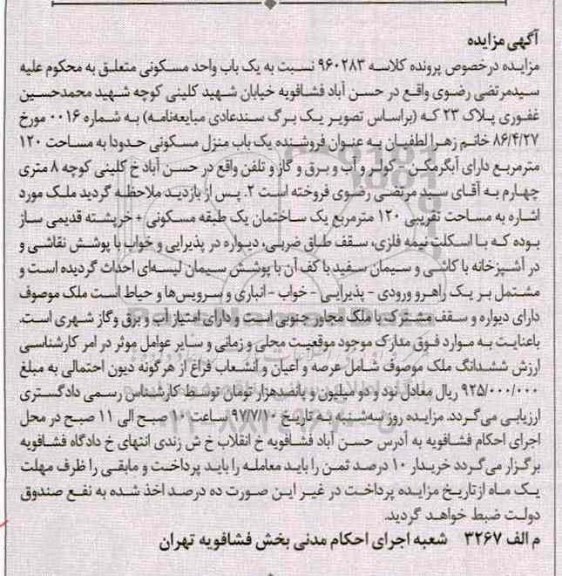 آگهی مزایده
مزایده درخصوص پرونده کلاسه ۹۶۰۲۸۳ نسبت به یک باب واحد مسکونی متعلق به محکوم علیه
سیدمرتضی رضوی واقع در حسن آباد فشافویه خیابان شهید کلینی کوچه شهید محمدحسین
غفوری پلاک ۲۳ که (براساس تصویر یک برگ سندعادی مبایعه‌نامه) به شماره ۰۰۱۶ مورخ
۸۶/۴/۲۷ خانم زهرا لطفیان به عنوان فروشنده یک باب منزل مسکونی حدودا به مساحت ۱۲۰
مترمربع دارای آبگرمکن - کولر و آب و برق و گاز و تلفن واقع در حسن آباد خ کلینی کوچه ۸ متری
چهارم به آقای سید مرتضی رضوی فروخته است ۲. پس از بازدید ملاحظه گردید ملک مورد
اشاره به مساحت تقریبی ۱۲۰ مترمربع یک ساختمان یک طبقه مسکونی + خرپشته قدیمی ساز
بوده که با اسکلت نیمه فلزی، سقف طاق ضربی، دیواره در پذیرایی و خواب با پوشش نقاشی و
در آشپزخانه با کاشی و سیمان سفید با کف آن با پوشش سیمان لیسه‌ای احداث گردیده است و
مشتمل بر یک راهرو ورودی - پذیرایی - خواب - انباری و سرویس‌ها و حیاط است ملک موصوف
دارای دیواره و سقف مشترک با ملک مجاور جنوبی است و دارای امتیاز آب و برق وگاز شهری است.
باعنایت به موارد فوق مدارک موجود موقعیت محلی و زمانی و سایر عوامل موثر در امر کارشناسی
ارزش ششدانگ ملک موصوف شامل عرصه و اعیان و انشعاب فراغ از هرگونه دیون احتمالی به مبلغ
۹۲۵/۰۰۰/۰۰۰ ریال معادل نود و دو میلیون و پانصدهزار تومان توسط کارشناس رسمی دادگستری
ارزیابی می‌گردد. مزایده روز سه‌شنبه به تاریخ ۹۷/۷/۱۰ ساعت ۱۰ صبح الی ۱۱ صبح در محل
اجرای احکام فشافویه به آدرس حسن آباد فشافویه خ انقلاب خ ش زندی انتهای خ دادگاه فشافویه
برگزار می‌گردد خریدار ۱۰ درصد ثمن را باید معامله را باید پرداخت و مابقی را ظرف مهلت
یک ماه ازتاریخ مزایده پرداخت در غیر این صورت ده درصد اخذ شده به نفع صندوق
دولت ضبط خواهد گردید.
م الف ۳۲۶۷ شعبه اجرای احکام مدنی بخش فشافویه تهران